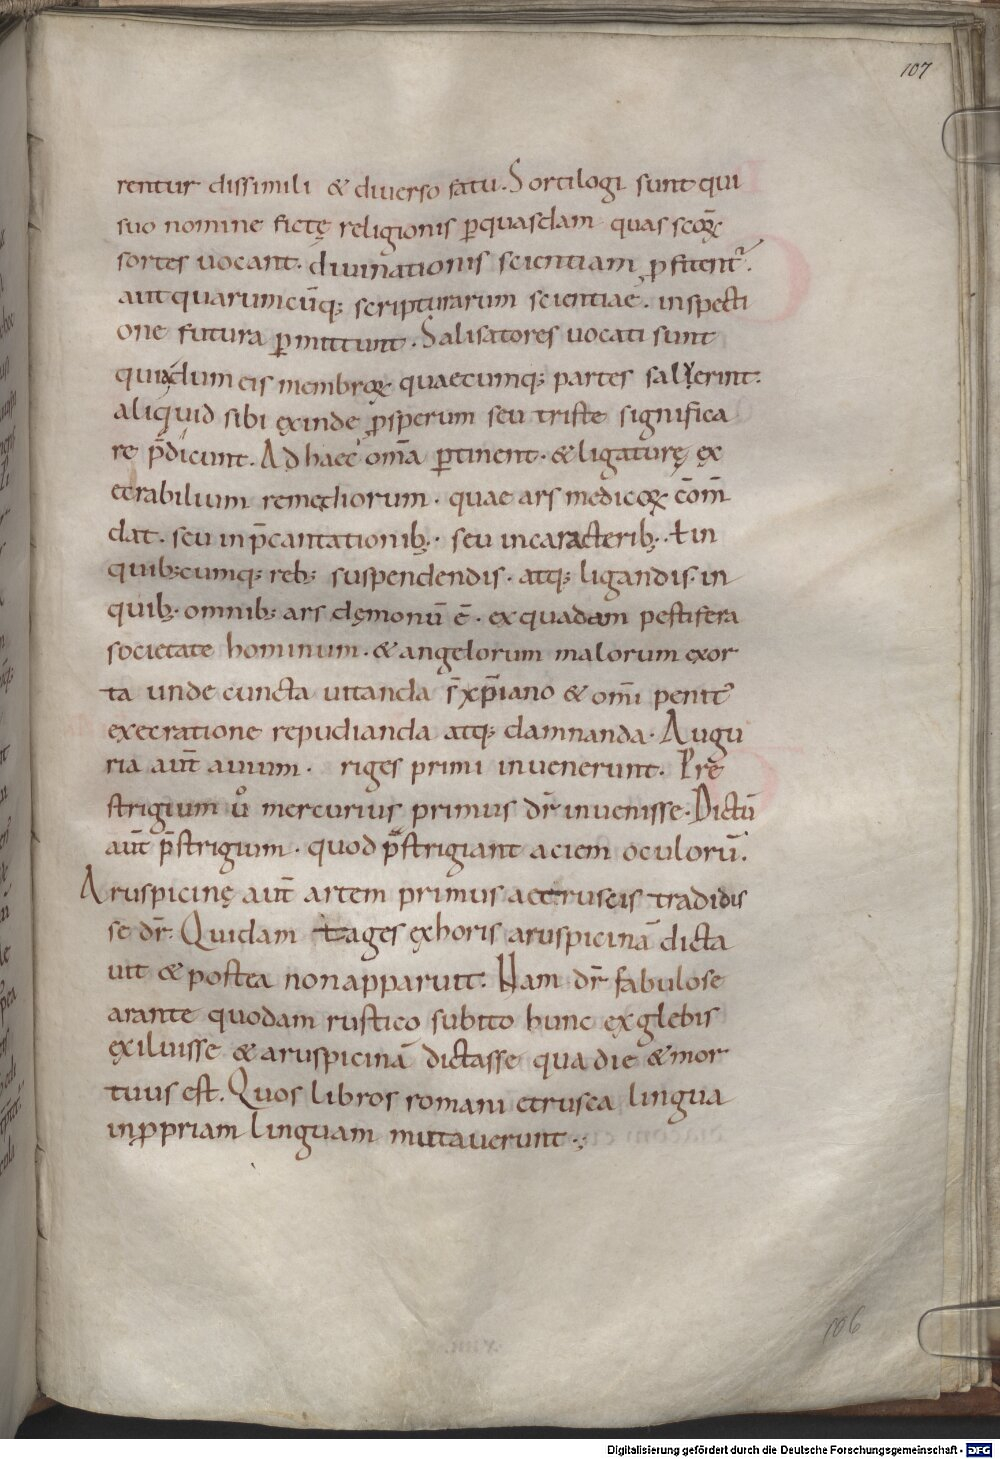 107
rentur dissimili & diuerso fatu. Sortilogi sunt qui
suo nomine fictę religionis p̱quasdam quas scōꝝ
sortes uocant. diuinationis scientiam ꝓfitent᷑.
aut quarumcūq; scripturarum scientiae. inspecti
one futura p̱mittunt. Salisatores uocati sunt
qui dum eis membroꝝ quaecumq; partes salierint.
aliquid sibi exinde ꝓsperum seu triste significa
re p̄dicunt. Ad haec om̄a p̱tinent. & ligaturę ex
ecrabilium remediorum. quae ars medicoꝝ cōm̄
dat. seu in p̄cantationib; seu incaracterib; ł in
quib;cumq; reb; suspendendis. atq; ligandis. in
quib; omnib; ars dęmonū ē. ex quadam pestifera
societate hominum. & angelorum malorum exor
ta unde cuncta uitanda s̄ xp̄iano & om̄i penit᷑
execratione repudianda atq; damnanda. Augu
ria aut̄ auium. riges primi inuenerunt. Prę
strigium ū̊ mercurius primus dr̄ inuenisse. Dictū
aut̄ p̄strigium. quod p̄strigiant aciem oculorū.
Aruspicinę aut̄ artem primus acetruscis tradidis
se dr̄. Quidam tages exhoris aruspicinā dicta
uit & postea non apparuit. Nam dr̄ fabulose
arante quodam rustico subito hunc ex glebis
exiluisse & aruspicinā dictasse qua die & mor
tuus est. Quos libros romani etrusca lingua
inꝓpriam linguam mutauerunt.;
106
Digitalisierung gefördert durch die Deutsche Forschungsgemeinschaft - DFG